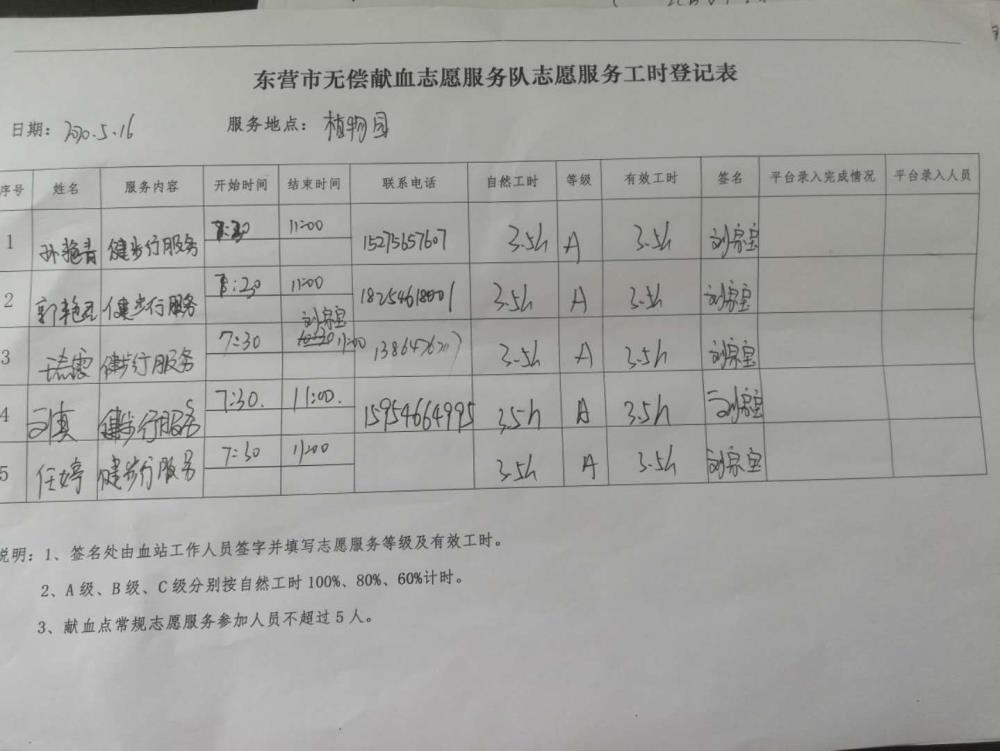 东营市无偿献血志愿服务队志愿服务工时登记表
日期：2020.5.16 服务地点：植物园
序号 姓名 服务内容 开始时间 结束时间 联系电话 自然工时 等级 有效工时 签名 平台录入完成情况 平台录入人员
1 孙艳青 健步行服务 7:30 11:00 15275657607 3.5h A 3.5h 刘宗宝
2 郭艳君 健步行服务 11:00 3.5h A 3.5h 刘宗宝
刘宗宝
3 健步行服务 7:30 11:00 3.5h A 3.5h 刘宗宝
4 健步行服务 7:30. 11:00. 15954664995 3.5h A 3.5h 刘宗宝
5 任婷 健步行服务 7:30 11:00 3.5h A 3.5h 刘宗宝
说明：1、签名处由血站工作人员签字并填写志愿服务等级及有效工时。
2、A 级、B 级、C 级分别按自然工时 100%、80%、60%计时。
3、献血点常规志愿服务参加人员不超过 5 人。